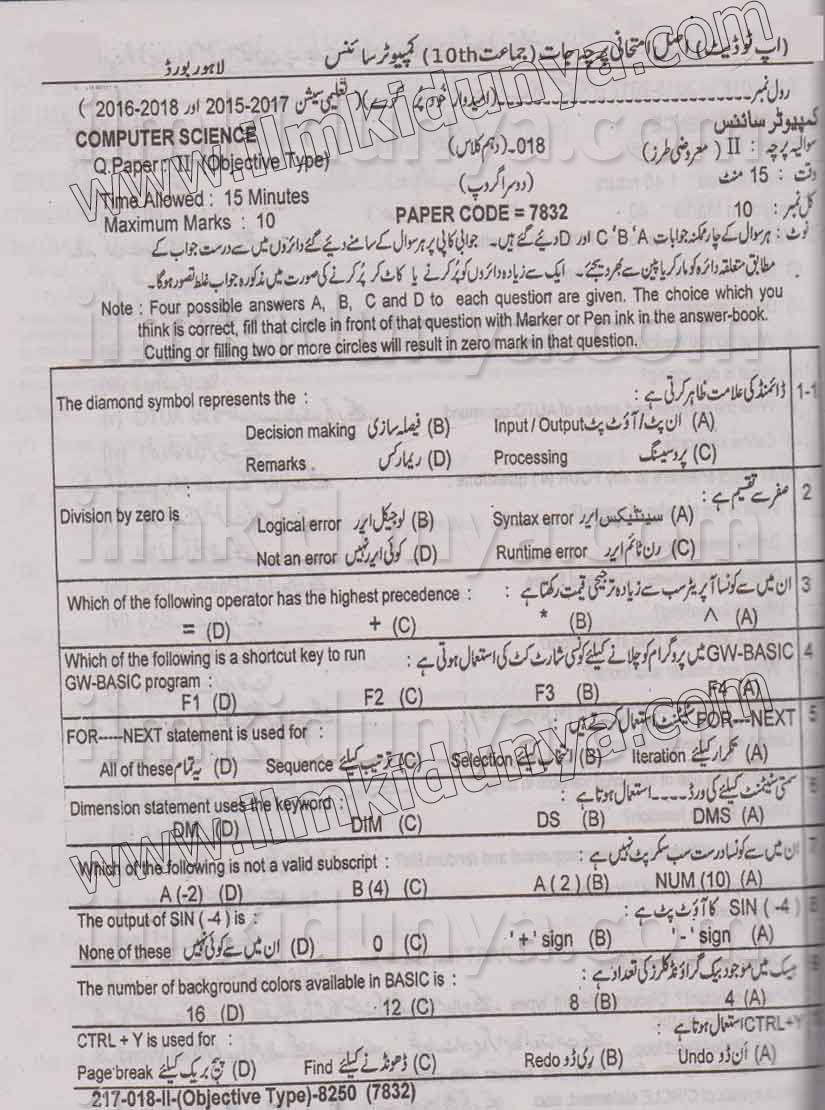 (اپ ٹو ڈیٹ) اصل امتحانی پرچہ جات (جماعت 10th) کمپیوٹر سائنس لاہور بورڈ
رول نمبر (امیدوار خود پُر کرے) (تعلیمی سیشن 2015-2017 اور 2016-2018)
کمپیوٹر سائنس COMPUTER SCIENCE
سوالیہ پرچہ : II (معروضی طرز) 018-(دہم کلاس) Q.Paper : II (Objective Type)
وقت : 15 منٹ (دوسرا گروپ) Time Allowed : 15 Minutes
کل نمبر : 10 PAPER CODE = 7832 Maximum Marks : 10
نوٹ : ہر سوال کے چار ممکنہ جوابات A ' B ' C اور D دیئے گئے ہیں۔ جوابی کاپی پر ہر سوال کے سامنے دیئے گئے دائروں میں سے درست جواب کے
مطابق متعلقہ دائرہ کو مارکر یا پین سے بھر دیجئے۔ ایک سے زیادہ دائروں کو پُر کرنے یا کاٹ کر پُر کرنے کی صورت میں مذکورہ جواب غلط تصور ہوگا۔
Note : Four possible answers A, B, C and D to each question are given. The choice which you
think is correct, fill that circle in front of that question with Marker or Pen ink in the answer-book.
Cutting or filling two or more circles will result in zero mark in that question.
1-1 ڈائمنڈ کی علامت ظاہر کرتی ہے : The diamond symbol represents the :
(A) ان پٹ/آؤٹ پٹ Input / Output (B) فیصلہ سازی Decision making
(C) پروسیسنگ Processing (D) ریمارکس Remarks
2 صفر سے تقسیم ہے : Division by zero is :
(A) سینٹیکس ایرر Syntax error (B) لوجیکل ایرر Logical error
(C) رن ٹائم ایرر Runtime error (D) کوئی ایرر نہیں Not an error
3 ان میں سے کونسا آپریٹر سب سے زیادہ ترجیحی قیمت رکھتا ہے : Which of the following operator has the highest precedence :
(A) ^ (B) * (C) + (D) =
4 GW-BASIC میں پروگرام کو چلانے کیلئے کونسی شارٹ کٹ کی استعمال ہوتی ہے : Which of the following is a shortcut key to run
GW-BASIC program :
(A) F4 (B) F3 (C) F2 (D) F1
5 FOR---NEXT سٹیٹمنٹ استعمال کرتے ہیں : FOR-----NEXT statement is used for :
(A) تکرار کیلئے Iteration (B) انتخاب کیلئے Selection (C) ترتیب کیلئے Sequence (D) یہ تمام All of these
6 سمتی سٹیٹمنٹ کیلئے کی ورڈ ---- استعمال ہوتا ہے : Dimension statement uses the keyword :
(A) DMS (B) DS (C) DIM (D) DM
7 ان میں سے کونسا درست سب سکرپٹ نہیں ہے : Which of the following is not a valid subscript :
(A) NUM (10) (B) A ( 2 ) (C) B (4) (D) A (-2)
8 SIN ( -4 ) کا آؤٹ پٹ ہے : The output of SIN ( -4 ) is :
(A) ' - ' sign (B) ' + ' sign (C) 0 (D) ان میں سے کوئی نہیں None of these
9 بیسک میں موجود بیک گراؤنڈ کلرز کی تعداد ہے : The number of background colors available in BASIC is :
(A) 4 (B) 8 (C) 12 (D) 16
CTRL+Y استعمال ہوتا ہے : CTRL + Y is used for :
(A) اَن ڈو Undo (B) ری ڈو Redo (C) ڈھونڈنے کیلئے Find (D) پیج بریک کیلئے Page break
217-018-II-(Objective Type)-8250 (7832)
www.ilmkidunya.com
ilmkidunya.com
ilmkidunya.com
www.ilmkidunya.com
ilmkidunya.com